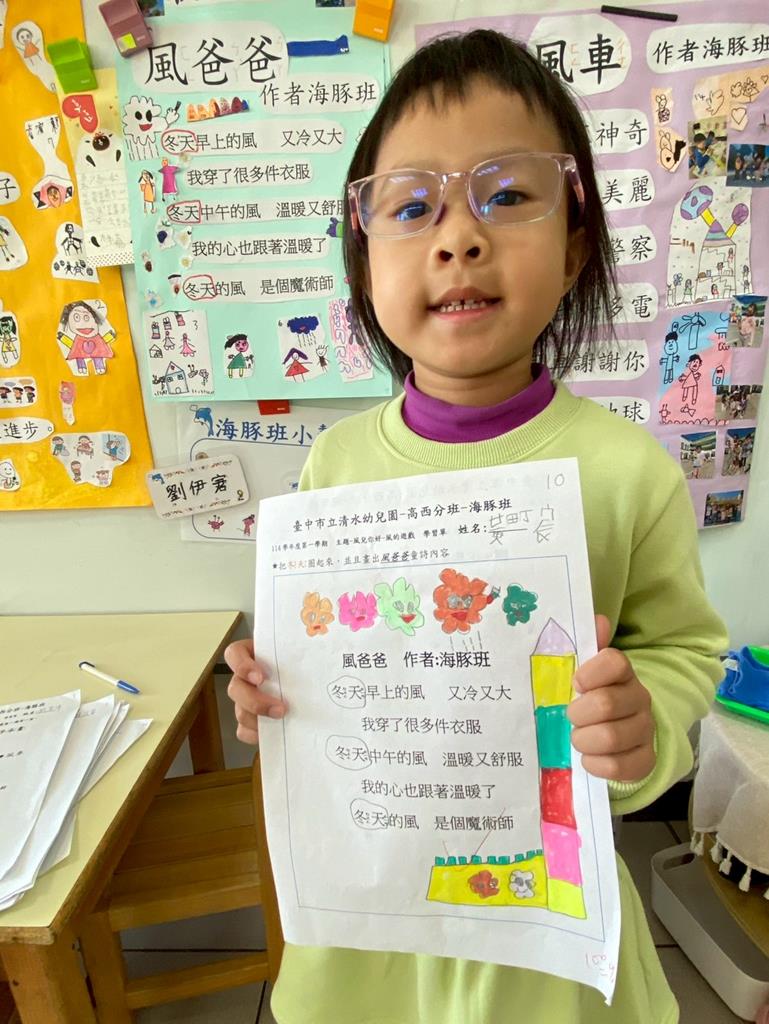 風爸爸
作者海豚班
冬天早上的風 又冷又大
我穿了很多件衣服
冬天中午的風 溫暖又舒服
我的心也跟著溫暖了
冬天的風 是個魔術師
風車
作者海豚班
神奇
美麗
警察
多電
謝謝你
地球
子
進步。
海豚班小
劉伊宭
10
臺中市立清水幼兒園-高西分班-海豚班
114學年度第一學期 主題-風兒你好-風的遊戲 學習單 姓名:
★把冬天圈起來,並且畫出風爸爸童詩內容
風爸爸 作者:海豚班
冬天早上的風 又冷又大
我穿了很多件衣服
冬天中午的風 溫暖又舒服
我的心也跟著溫暖了
冬天的風 是個魔術師
100